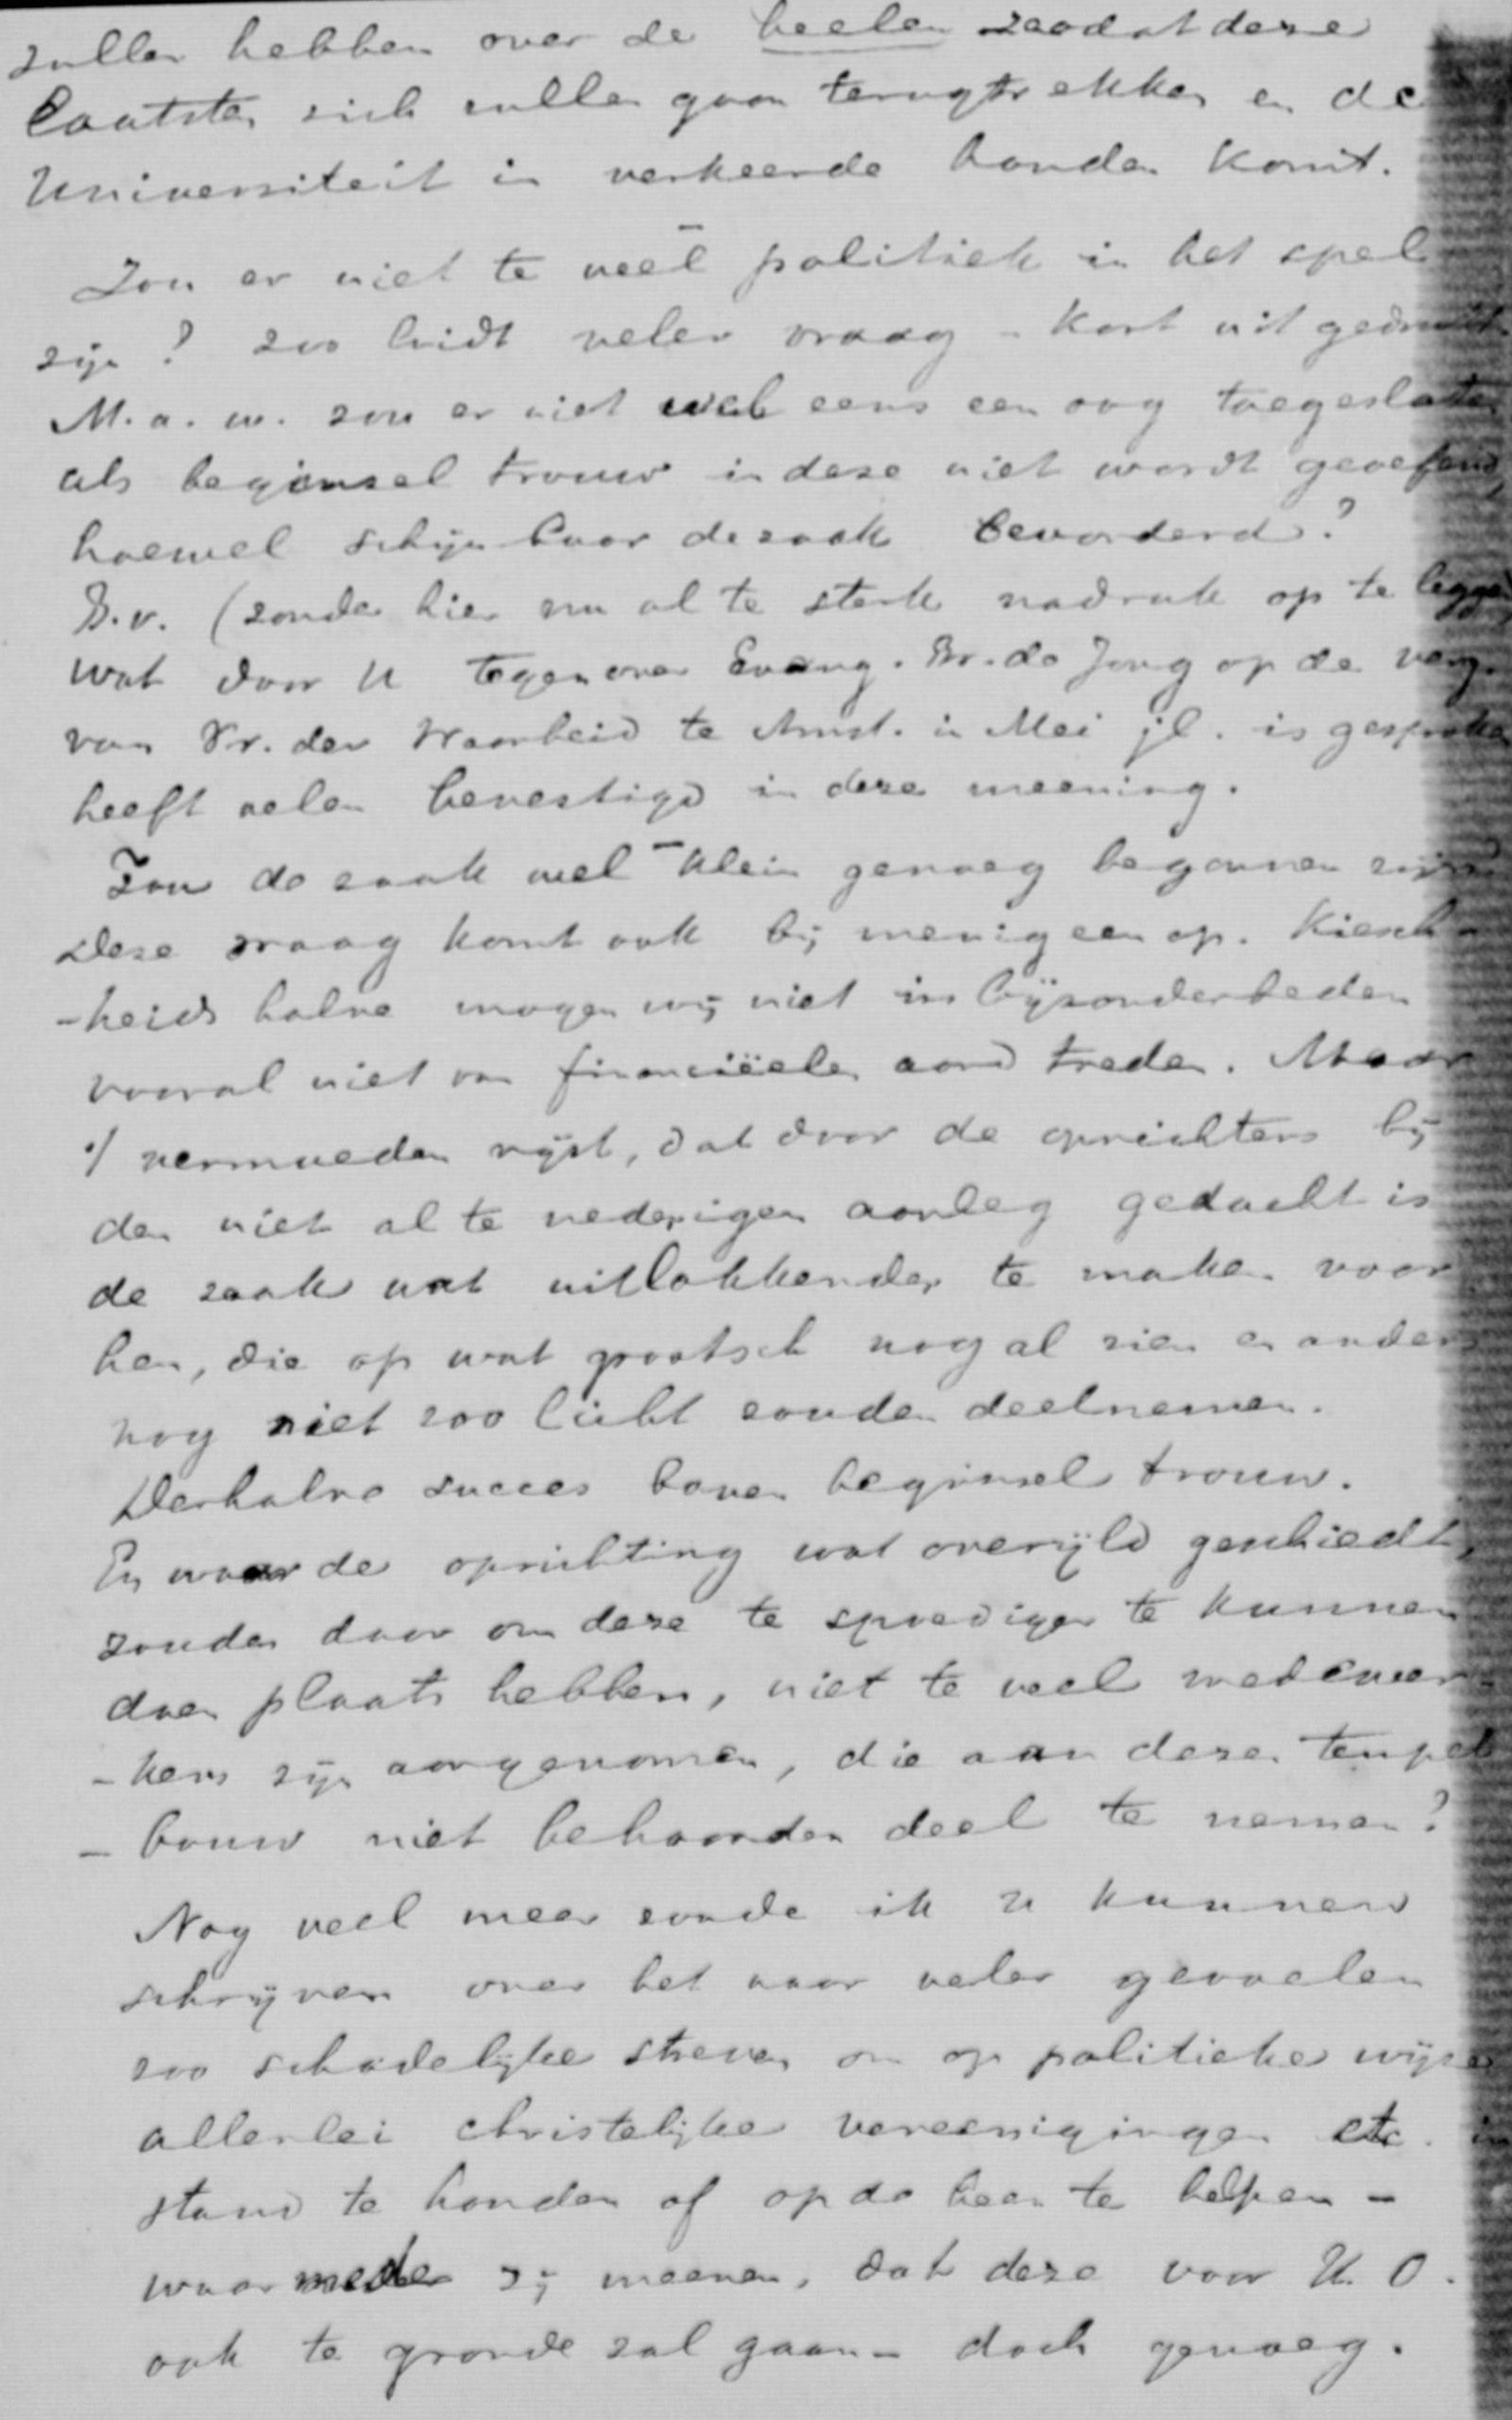 zullen hebben over de heelen zoodat deze
laatsten zich zullen gaan terugtrekken en de
Universiteit in verkeerde handen komt.
Zou er niet te veel politiek in het spel
zijn? zoo luidt veler vraag - kort uitgedrukt
M.a.w. zou er niet wel eens een oog toegesloten
als beginsel trouw in deze niet wordt geoefend,
hoewel schijnbaar de zaak bevorderd?
B.v. (zonder hier nu al te sterk nadruk op te leggen
wat door U tegenover Evang. Br. de Jong op de verg.
van Vr. der Waarheid te Amst. in Mei jl. is gesproken
heeft velen bevestigd in deze meening.
Zou de zaak wel klein genoeg begonnen zijn?
Deze vraag komt ook bij menigeen op. Kiesch-
-heids halve mogen wij niet in bijzonderheden
vooral niet van financiëelen aard treden. Maar
't vermoeden rijst, dat door de oprichters bij
den niet al te nederigen aanleg gedacht is
de zaak wat uitlokkender te maken voor
hen, die op wat grootsch nog al zien en anders
nog niet zoo licht zouden deelnemen.
Derhalve succes boven beginsel trouw.
En waar de oprichting wat overijld geschiedt,
zouden daar om deze te spoediger te kunnen
doen plaats hebben, niet te veel medewer-
-kers zijn aangenomen, die aan dezen tempel
- bouw niet behoorden deel te nemen?
Nog veel meer zoude ik U kunnen
schrijven over het naar veler gevoelen
zoo schadelijke streven om op politieke wijze
allerlei christelijke vereenigingen etc. in
stand te houden of op de been te helpen -
waarmede zij meenen, dat deze voor H. O.
ook te gronde zal gaan - doch genoeg.